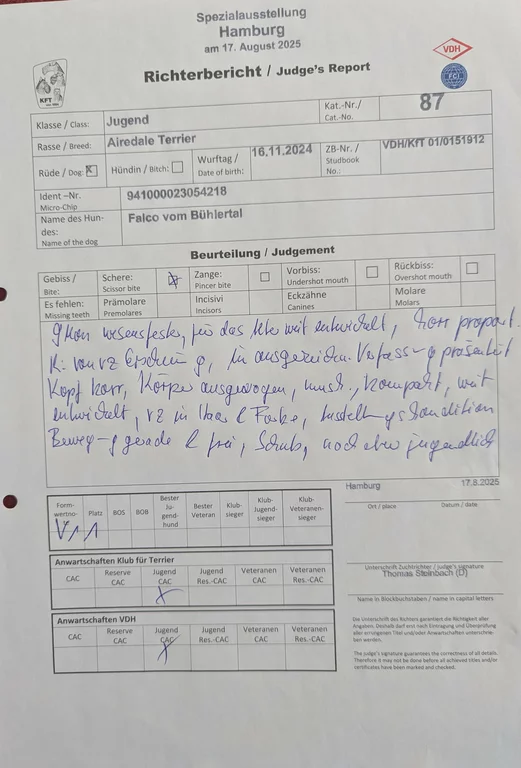 Spezialausstellung
Hamburg
am 17. August 2025
Richterbericht / Judge's Report
VDH
FCI
KFT
Klasse / Class: Jugend Kat.-Nr./ Cat.-No. 87
Rasse / Breed: Airedale Terrier
Rüde / Dog: X Hündin / Bitch: Wurftag / Date of birth: 16.11.2024 ZB-Nr. / Studbook No.: VDH/KfT 01/0151912
Ident –Nr. Micro-Chip 941000023054218
Name des Hundes: Name of the dog Falco vom Bühlertal
Beurteilung / Judgement
Gebiss / Bite: Schere: Scissor bite X Zange: Pincer bite Vorbiss: Undershot mouth Rückbiss: Overshot mouth
Es fehlen: Missing teeth Prämolare Premolares Incisivi Incisors Eckzähne Canines Molare Molars
9 Mon wesensfester, für das Alter weit entwickelt, korr proport.
K: von vz in ausgezeichn. präsentiert
Kopf korr, Körper ausgewogen, kompakt, weit
entwickelt, vz in Haar & Farbe, Ausstellungskondition
Beweg-g gerade & frei, Schub, noch aber jugendlich
Formwertno- Platz BOS BOB Bester Jugendhund Bester Veteran Klubsieger Klub-Jugendsieger Klub-Veteranensieger
V1 1
Anwartschaften Klub für Terrier
CAC Reserve CAC Jugend CAC Jugend Res.-CAC Veteranen CAC Veteranen Res.-CAC
X
Anwartschaften VDH
CAC Reserve CAC Jugend CAC Jugend Res.-CAC Veteranen CAC Veteranen Res.-CAC
X
Hamburg 17.8.2025
Ort / place Datum / date
Unterschrift Zuchtrichter / judge's signature
Thomas Steinbach (D)
Name in Blockbuchstaben / name in capital letters
Die Unterschrift des Richters garantiert die Richtigkeit aller
Angaben. Deshalb darf erst nach Eintragung und Überprüfung
aller errungenen Titel und/oder Anwartschaften unterschrieben
werden.
The judge's signature guarantees the correctness of all details.
Therefore it may not be done before all achieved titles and/or
certificates have been marked and checked.